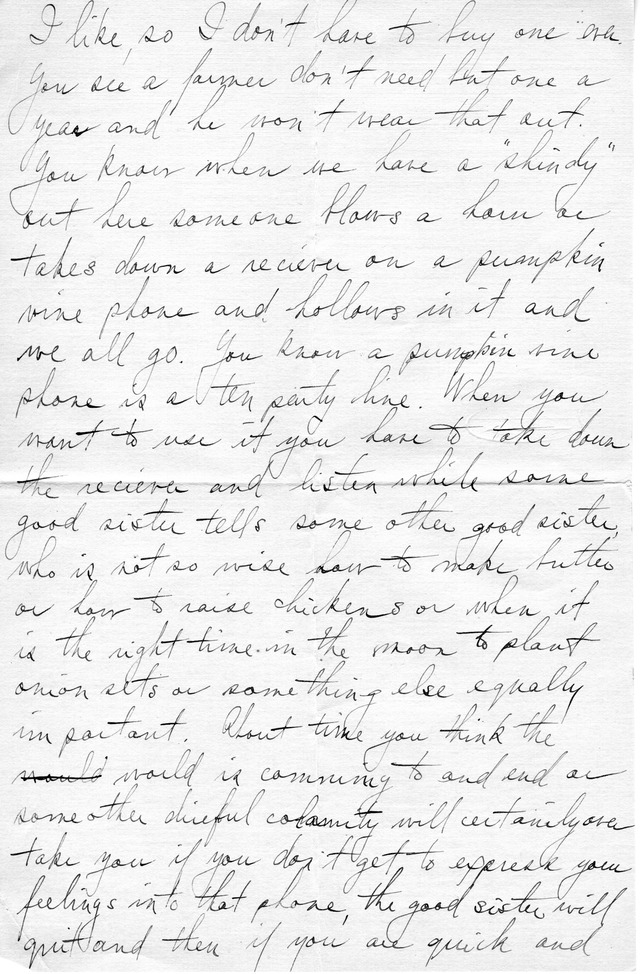 I like, so I don't have to buy one ever.
You see a farmer don't need but one a
year and he won't wear that out.
You know when we have a "shindy"
out here some one blows a horn or
takes down a reciever on a pumpkin
vine phone and hollows in it and
we all go. You know a pumpkin vine
phone is a ten party line. When you
want to use it you have to take down
the reciever and listen while some
good sister tells some other good sister,
who is not so wise how to make butter
or how to raise chickens or when it
is the right time in the moon to plant
onion sets or something else equally
important. About time you think the
would world is comming to and end or
some other direful calamity will certainly over
take you if you don't get to express your
feelings into that phone, the good sister will
quit and then if you are quick and